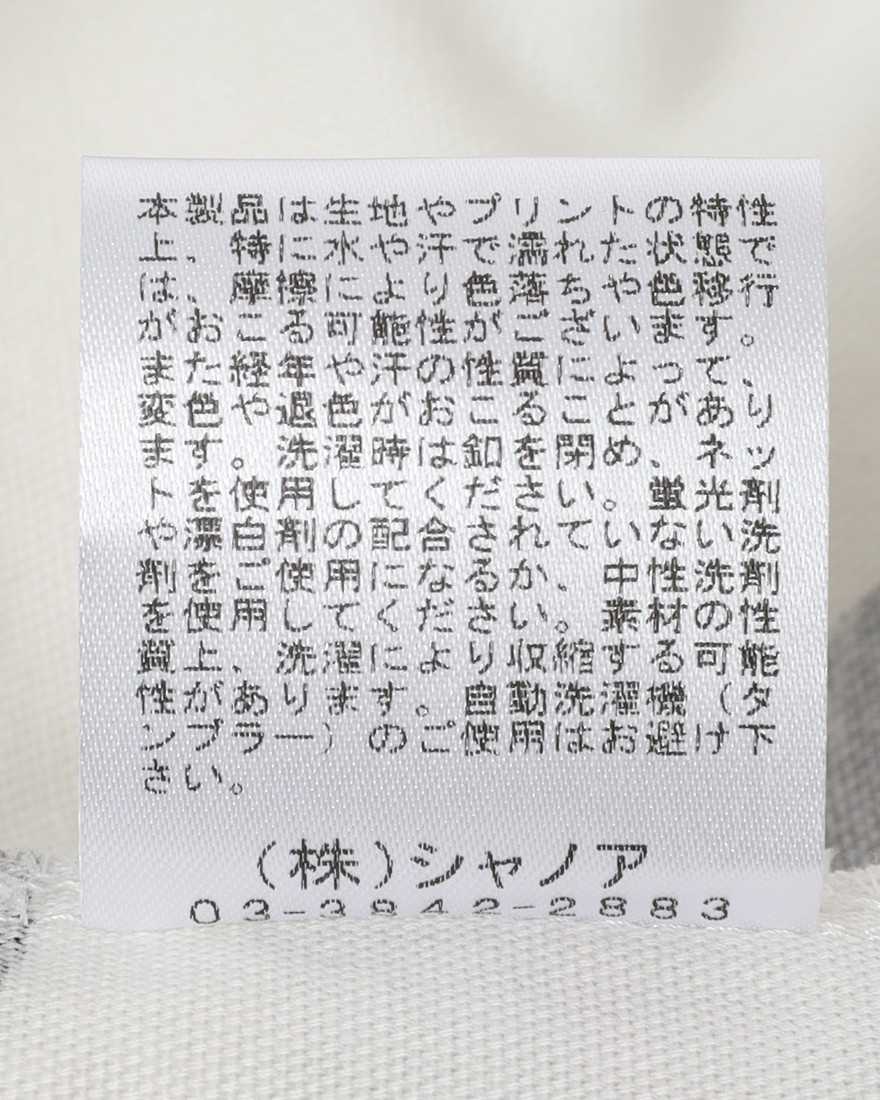 本製品は生地やプリントの特性
上、特に水や汗で濡れた状態で
は、摩擦により色落ちや色移行
がおこる可能性がございます。
また経年や汗の性質によって、
変色や退色がおこることがあり
ます。洗濯時は釦を閉め、ネッ
トを使用してください。蛍光剤
や漂白剤の配合されていない洗
剤をご使用になるか、中性洗剤
を使用してください。素材の性
質上、洗濯により収縮する可能
性があります。自動洗濯機(タ
ンブラー)のご使用はお避け下
さい。
(株)シャノア
03-3842-2883